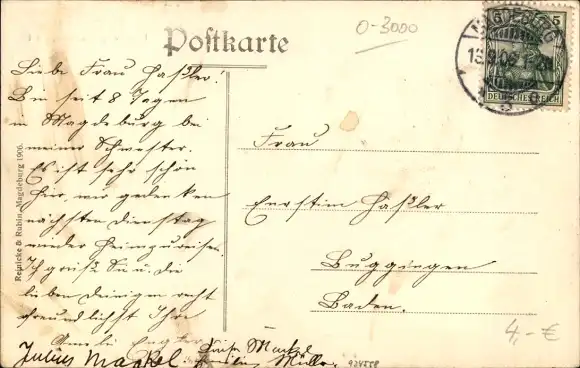 Postkarte
0-3000
MAGDEBURG
DEUTSCHES REICH
5
Liebe Frau Haßler!
Bin seit 8 Tagen
in Magdeburg bei
meiner Schwester.
Es ist sehr schön
hier, wir gedenken
nächsten Dienstag
wieder heimzureisen.
Ich grüße Sie u. die
lieben Deinigen recht
freundlichst Ihre
Amalie
Julius Mackel.
Müller.
Reinicke & Rubin, Magdeburg 1906.
Frau
Haßler
Buggingen
Baden.
4,- €
934558